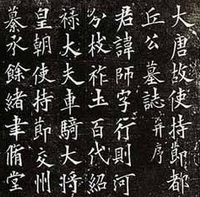 大唐故使持節都
丘公墓誌并序
君諱師字行則河
分枝祚土百代紹
祿大夫車騎大將
皇朝使持節交州
纂承餘緒聿脩堂